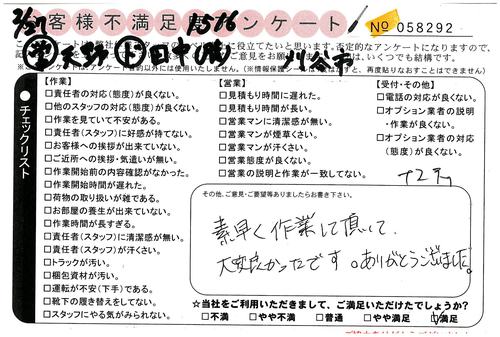 2/27
お客様不満足度アンケート
1586
No 058292
営 天野 ト 田中(隆)
刈谷市
●チェックリスト
【作業】
□責任者の対応(態度)が良くない。
□他のスタッフの対応(態度)が良くない。
□作業を見ていて不安がある。
□責任者(スタッフ)に好感が持てない。
□お客様への挨拶が出来ていない。
□ご近所への挨拶・気遣いが無い。
□作業開始前の内容確認がなかった。
□作業開始時間が遅れた。
□荷物の取り扱いが雑である。
□お部屋の養生が出来ていない。
□作業時間が長すぎる。
□責任者(スタッフ)に清潔感が無い。
□責任者(スタッフ)が汗くさい。
□トラックが汚い。
□梱包資材が汚い。
□運転が不安(下手)である。
□靴下の履き替えをしてない。
□スタッフにやる気がみられない。
【営業】
□見積もり時間に遅れた。
□見積もり時間が長い。
□営業マンに清潔感が無い。
□営業マンが煙草くさい。
□営業マンが汗くさい。
□営業態度が良くない。
□営業の説明と作業が一致してない。
【受付・その他】
□電話の対応が良くない。
□オプション業者の説明
・作業が良くない。
□オプション業者の対応
(態度)が良くない。
その他、ご意見・ご要望等ありましたらお書き下さい。
素早く作業して頂いて、
大変良かったです。ありがとうございました。
☆当社をご利用いただきまして、ご満足いただけたでしょうか?
□不満 □やや不満 □普通 □やや満足 ☑満足